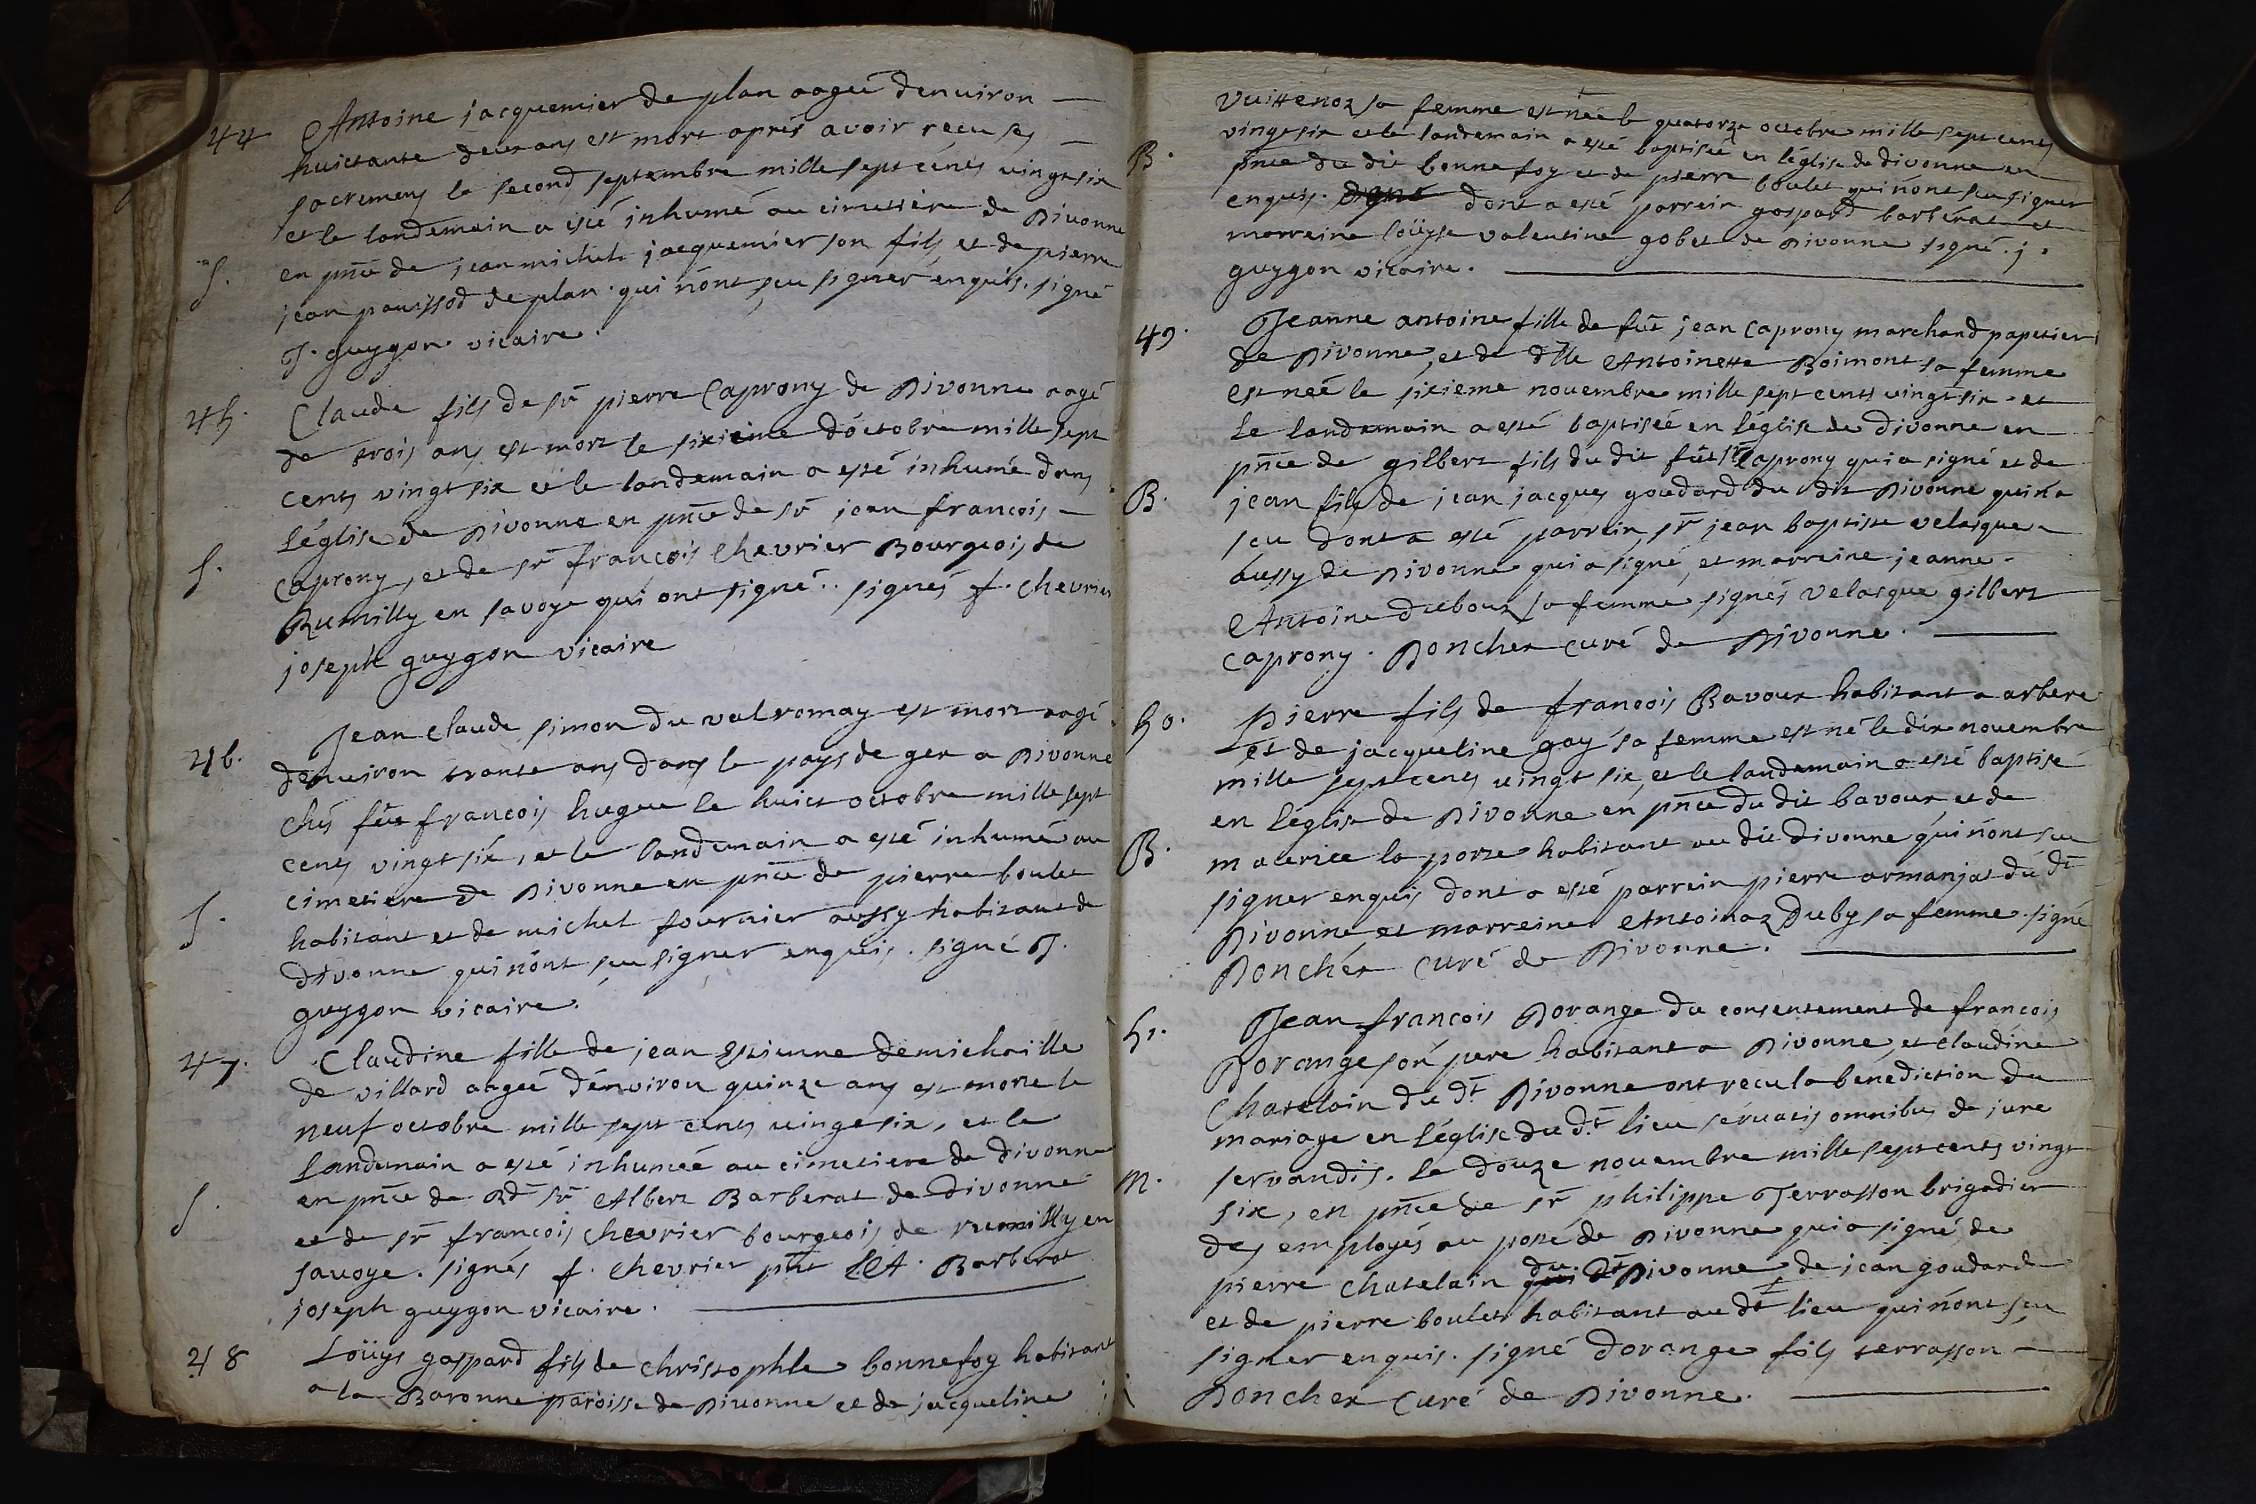 44 Antoine jacquemier de plan aagé denuiron —
huictante deux ans est mort aprés avoir recu ses —
sacremens le second septembre mille sept cents vingt six
et le landemain a esté inhumé au cimetiere de Divonne
S. en pñce de jean michel jacquemier son fils et de pierre
jean pauissod de plan qui nont sçu signer enquis. signé
J. guygon vicaire.
45. Claude fils de sr pierre Caprony de Divonne aagé
de trois ans est mort le sixieme d'octobre mille sept
cents vingt six et le landemain a esté inhumé dans
l'église de Divonne en pñce de sr jean francois —
S. Caprony, et de sr francois Chevrier Bourgeois de
Rumilly en savoye qui ont signé. signés f. Chevrier
joseph guygon vicaire
46. Jean Claude simon du valromay est mort aagé
denuiron trante ans dans le pays de gex a Divonne
chés fût francois hugue le huict octobre mille sept
cents vingt six, et le landemain a esté inhumé au
cimetiere de Divonne en pñce de pierre boulet
S. habitant et de michel fournier aussy habitant de
divonne qui nônt sçu signer enquis. signé J.
guygon vicaire.
47. Claudine fille de jean Estienne demichaille
de villard aageé d'environ quinze ans est morte le
neuf octobre mille sept cents vingt six, et le
landemain a esté inhumeé au cimetiere de divonne
en pñce de Rd sr Albert Barberat de divonne
S. et de sr francois chevrier bourgeois de rumilly en
savoye. signés f. chevrier pñt A. Barberat
joseph guygon vicaire.
48 Loüys gaspard fils de christophle bonnefoy habitant
a la Baronne paroisse de Divonne et de jacqueline
vuittenoz sa femme est née le quatorze octobre mille sept cents
B. vingt six et le landemain a esté baptisée en l'église de divonne en
pñce du dit bonnefoy et de pierre boulet qui nont sçu signer
enquis. signé dont a esté parrein gaspard barberat et
marreine loüyse valentine gobet de Divonne signé. j.
guygon vicaire.
49. Jeanne antoine fille de fût jean Caprony marchand papetier
de Divonne, et de dlle Antoinette Boimont sa femme
est neé le sixieme novembre mille sept cents vingt six et
le landemain a esté baptiseé en l'église de divonne en
pñce de gilbert fils du dit fût sr Caprony qui a signé et de
B. jean fils de jean jacques goudard du dit Divonne qui n'a
sçu dont a esté parrein sr jean baptiste velasque
aussy de Divonne qui a signé, et marreine jeanne
Antoine dubouz sa femme signés Velasque gilbert
Caprony. Donchex Curé de Divonne.
50. Pierre fils de francois Bavoux habitant a arbere
et de jacqueline gay sa femme est né le dix novembre
mille sept cents vingt six, et le landemain a esté baptisé
en l'église de Divonne en pñce du dit bavoux et de
B. maurice la porte habitant au dit divonne qui nont sçu
signer enquis dont a esté parrein pierre armanjat du dt
Divonne et marreine Antoinaz Duby sa femme. signé
Donchex Curé de Divonne.
51. Jean francois Dorange du consentement de francois
Dorange son pere habitant a Divonne, et claudine
Chatelain du dt Divonne ont recu la benediction du
mariage en l'église du dt lieu servatis omnibus de jure
M. servandis. le douze novembre mille sept cents vingt
six, en pñce de sr philippe Terrasson brigadier
des employés au poste de Divonne qui a signé, de
pierre chatelain du dt Divonne de jean goudard
et de pierre boulet habitant au dt lieu qui nont sçu
signer enquis. signé dorange fils terrasson —
Donchex Curé de Divonne.